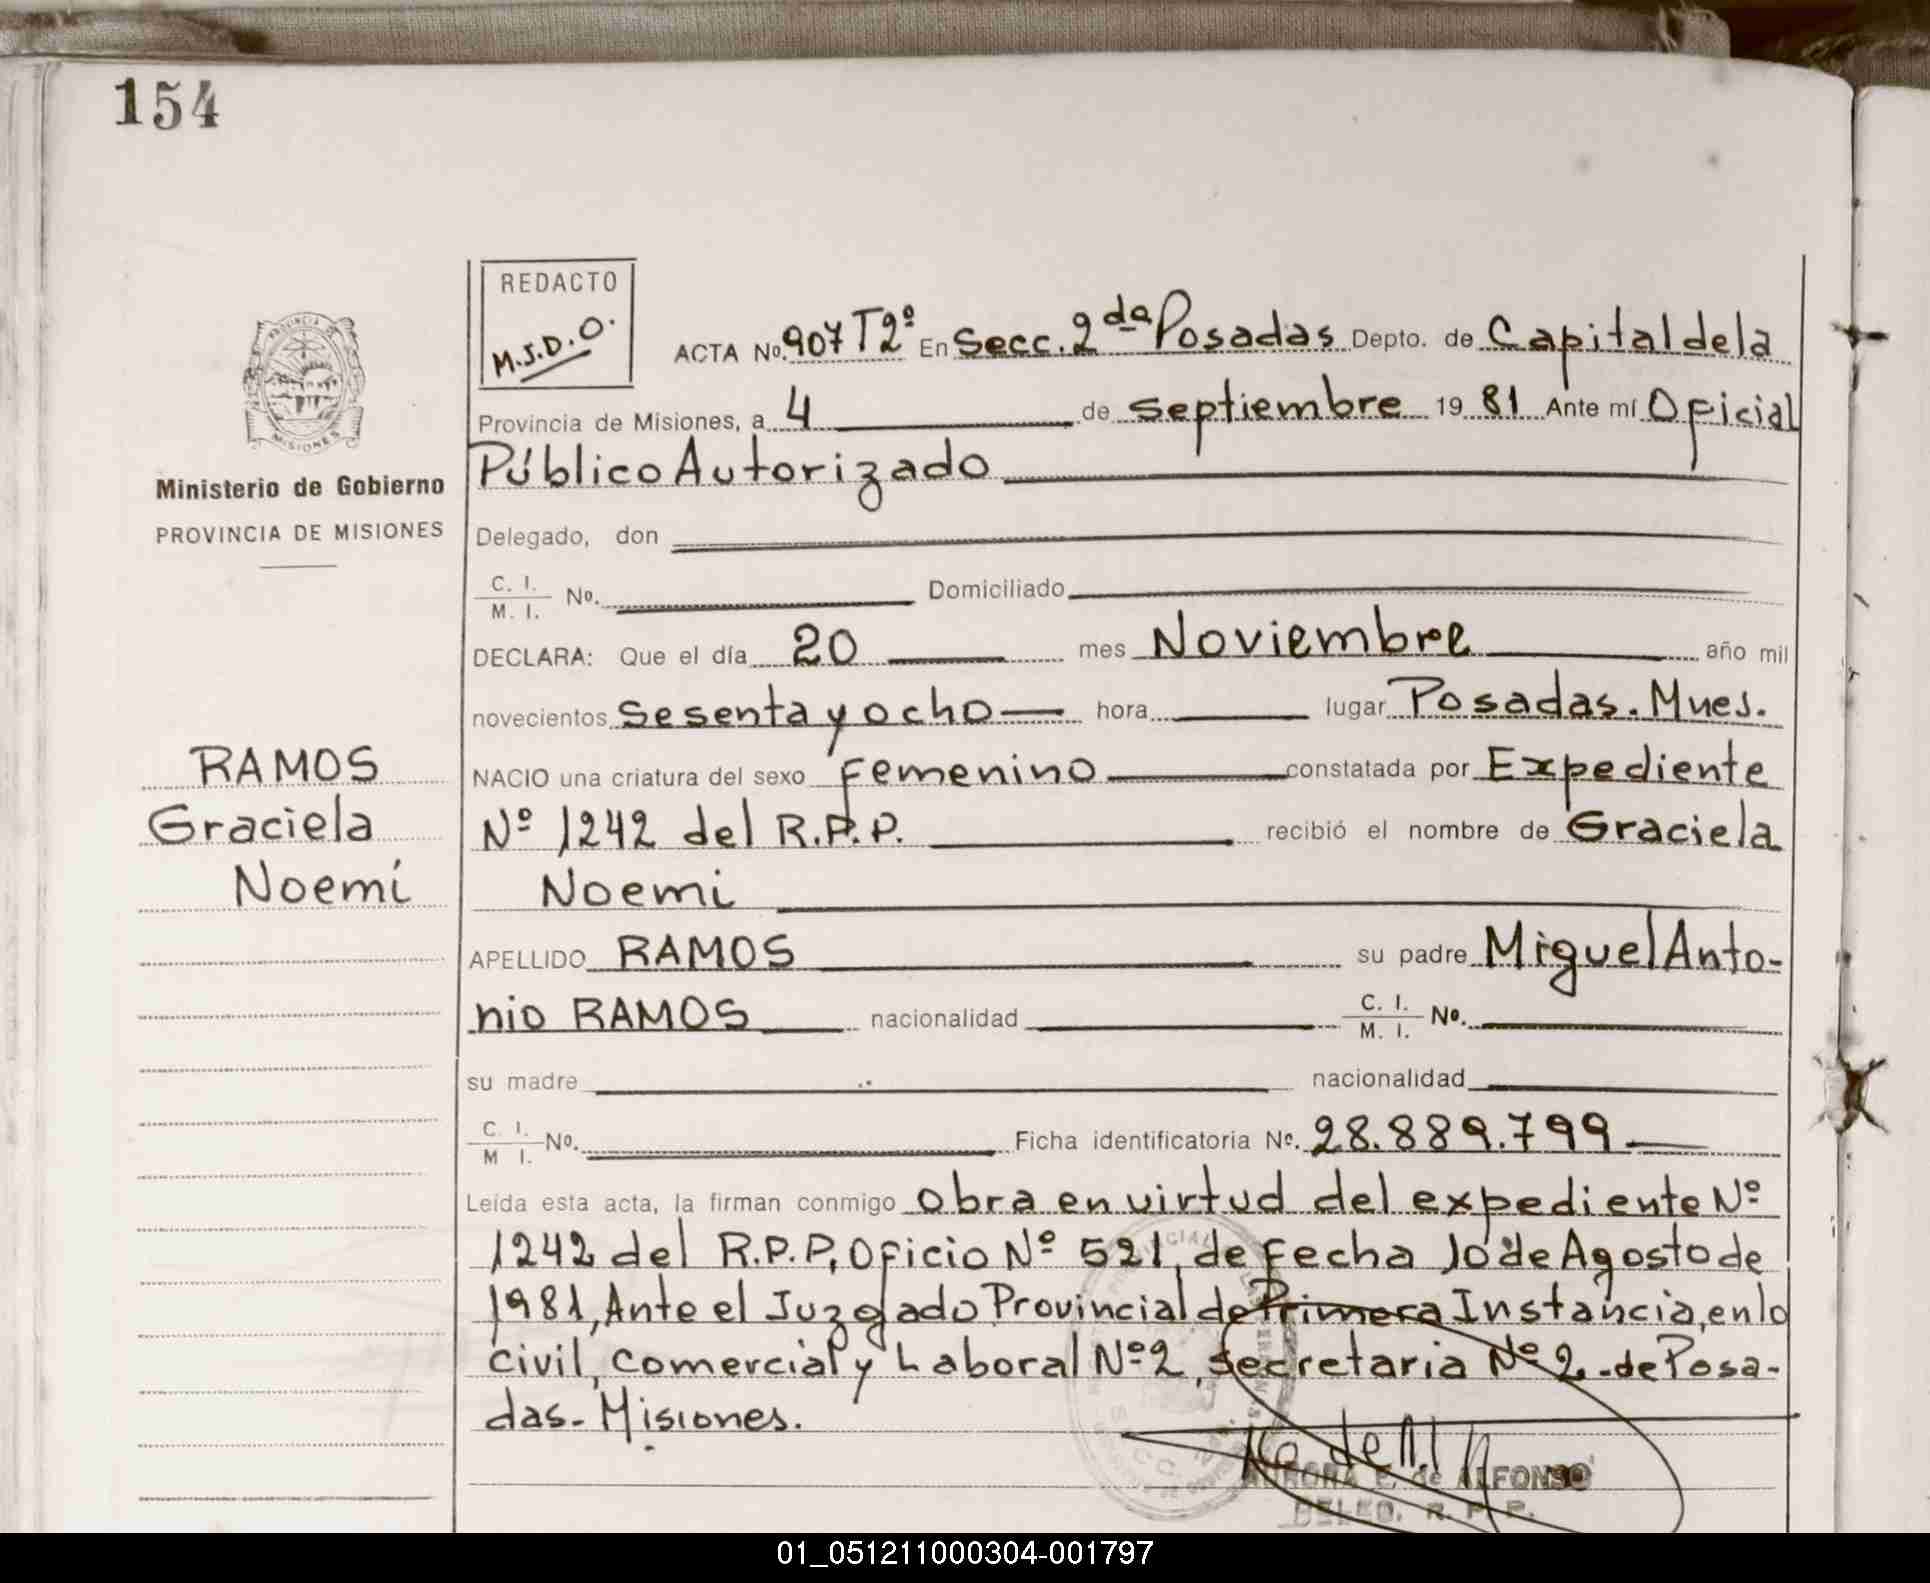 154
REDACTO
M.J.D.O.
ACTA No. 907 T2º En Secc. 2da Posadas Depto. de Capital de la
Provincia de Misiones, a 4 de septiembre 19 81 Ante mí Oficial
Público Autorizado
PROVINCIA DE
MISIONES
Ministerio de Gobierno
PROVINCIA DE MISIONES
Delegado, don
C. I. / M. I. No. Domiciliado
DECLARA: Que el día 20 mes Noviembre año mil
novecientos sesenta y ocho hora lugar Posadas. Mnes.
RAMOS
Graciela
Noemí
NACIO una criatura del sexo femenino constatada por Expediente
Nº 1242 del R.P.P. recibió el nombre de Graciela
Noemi
APELLIDO RAMOS su padre Miguel Anto-
nio RAMOS nacionalidad C. I. / M. I. No.
su madre nacionalidad
C. I. / M I. No. Ficha identificatoria No. 28.889.799
Leída esta acta, la firman conmigo obra en virtud del expediente Nº
1242 del R.P.P, Oficio Nº 521, de fecha 10 de Agosto de
1981, Ante el Juzgado Provincial de Primera Instancia, en lo
civil, comercial y Laboral Nº 2, secretaria Nº 2 - de Posa-
das - Misiones.
AURORA E. de ALFONSO
DELEG. R. P. P.
01_051211000304-001797